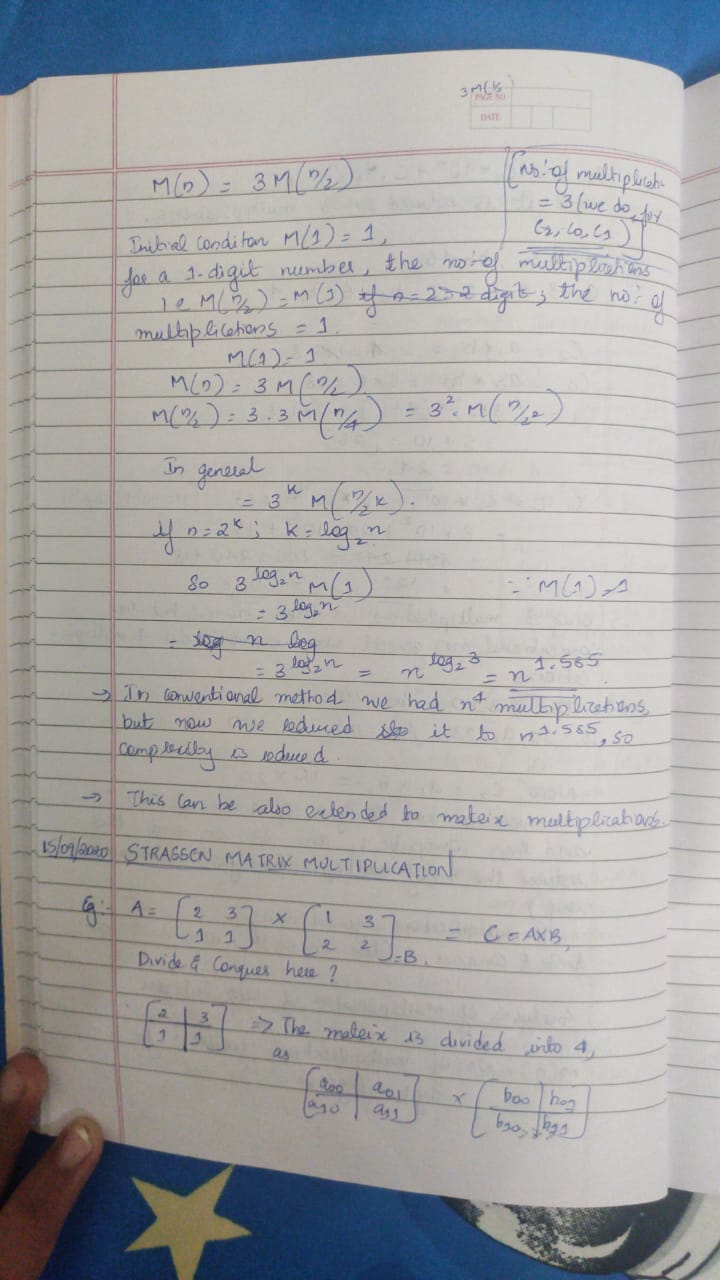 3M(½)
PAGE NO.
DATE
M(n) = 3M(n/2)
[No: of multiplicati-
= 3 (we do for
C2, C0, C1)]
Initial conditon M(1) = 1,
for a 1-digit number, the no: of multiplications
ie M(n/2) = M(1) if n = 2 => 2 digit; the no: of
multiplications = 1.
M(1) = 1
M(n) = 3M(n/2)
M(n/2) = 3.3M(n/4) = 3². M(n/2²)
In general
= 3^k M(n/2^k).
If n = 2^k ; k = log₂n
So 3^log₂n M(1) ∵ M(1) = 1
= 3^log₂n
= log n log
= 3^log₂n = n^log₂3 = n^1.585.
→ In conventional method we had n⁴ multiplications,
but now we reduced it to n^1.585, so
complexity is reduced.
→ This can be also extended to matrix multiplications.
15/09/2020 STRASSEN MATRIX MULTIPLICATION
Eg:- A = [2 3 × [1 3 = C = A×B,
1 1] 2 2] = B.
Divide & Conquer here ?
[2 | 3 => The matrix is divided into 4,
1 | 1] as
[a00 | a01 × [b00 | b01
a10 | a11] b10 | b11]